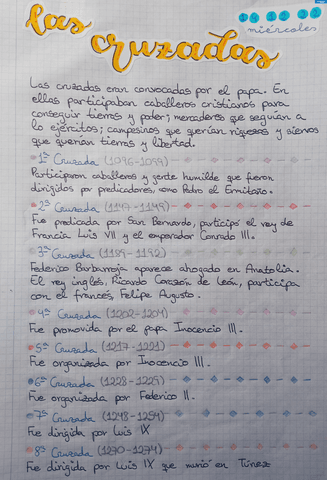 las cruzadas
miércoles
Las cruzadas eran convocadas por el papa. En
ellas participaban caballeros cristianos para
conseguir tierras y poder; mercaderes que seguían a
lo ejércitos; campesinos que querían riquezas y siervos
que querían tierras y libertad.
1ª Cruzada (1096-1099)
Participaron caballeros y gente humilde que fueron
dirigidos por predicadores, como Pedro el Ermitaño.
2ª Cruzada (1147-1149)
Fue predicada por San Bernardo, participó el rey de
Francia Luis VII y el emperador Conrado III.
3ª Cruzada (1189-1192)
Federico Barbarroja aparece ahogado en Anatolia.
El rey inglés, Ricardo Corazón de León, participa
con el francés, Felipe Augusto.
4ª Cruzada (1202-1204)
Fue promovida por el papa Inocencio III.
5ª Cruzada (1217-1221)
Fue organizada por Inocencio III.
6ª Cruzada (1228-1229)
Fue organizada por Federico II.
7ª Cruzada (1248-1254)
Fue dirigida por Luis IX
8ª Cruzada (1270-1274)
Fue dirigida por Luis IX que murió en Túnez